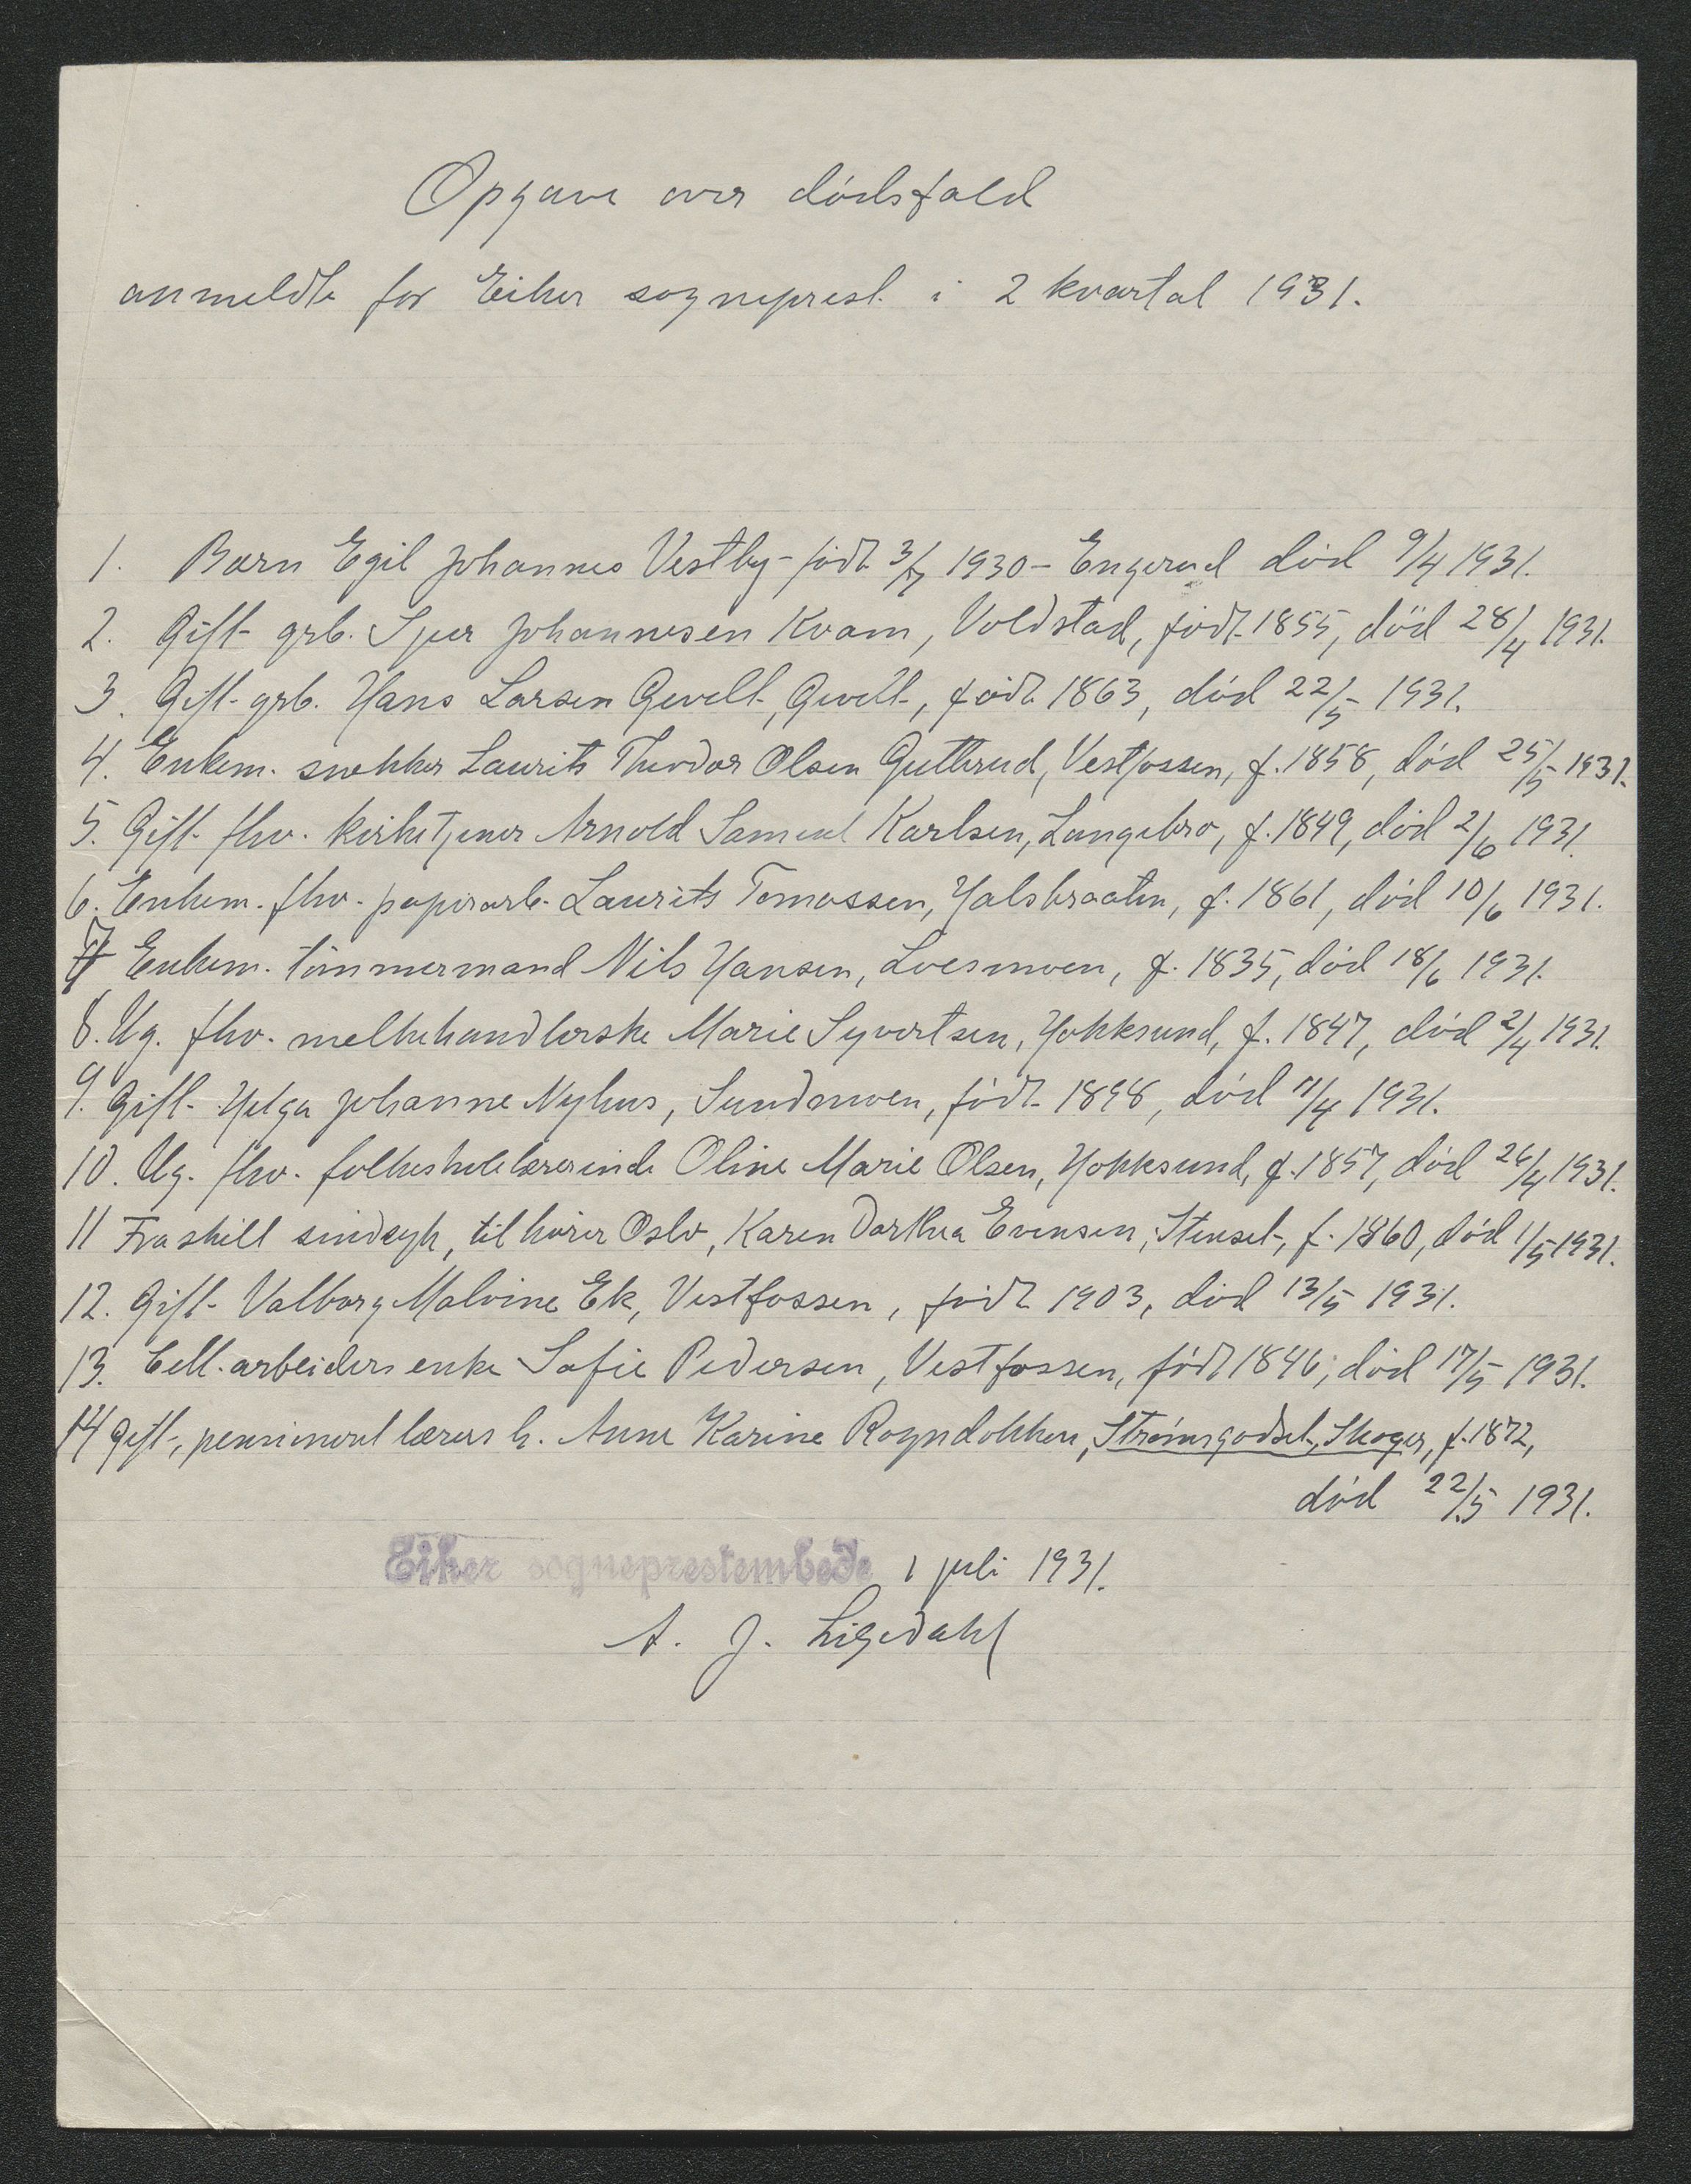 Opgave over dødsfald
anmeldte for Eiker sogneprest i 2 kvartal 1931.
1. Barn Egil Johannes Vestby - født 3/7 1930 - Engerud død 9/4 1931.
2. Gift grb. Sjur Johannesen Kvam, Voldstad, født 1855, død 28/4 1931.
3. Gift grb. Hans Larsen Gevelt, Gevelt, født 1863, død 22/5 1931.
4. Enkem. snekker Laurits Theodor Olsen Gutterud, Vestfossen, f. 1858, død 25/5 1931.
5. Gift fhv. kirketjener Arnold Samuel Karlsen, Langebro, f. 1849, død 2/6 1931.
6. Enkem. fhv. papirarb. Laurits Tomassen, Halsbraaten, f. 1861, død 10/6 1931.
7 Enkem. tømmermand Nils Hansen, Loesmoen, f. 1835, død 18/6 1931.
8. Ug. fhv. melkehandlerske Marie Syvertsen, Hokksund, f. 1847, død 2/4 1931.
9. Gift Helga Johanne Nyhus, Sundmoen, født 1898, død 11/4 1931.
10. Ug. fhv. folkeskolelærerinde Oline Marie Olsen, Hokksund, f. 1857, død 26/4 1931.
11 Fraskilt sindsyk, tilhører Oslo, Karen Dorthea Evensen, Stenset, f. 1860, død 1/5 1931.
12. Gift Valborg Malvine Ek, Vestfossen, født 1903, død 13/5 1931.
13. Cell. arbeiders enke Sofie Pedersen, Vestfossen, født 1846, død 17/5 1931.
14 Gift, pensionert lærers h. Anne Karine Rogndokken, Strømsgodset, Skoger, f. 1872,
død 22/5 1931.
Eiker sogneprestembede 1 juli 1931.
A. J. Ligedahl